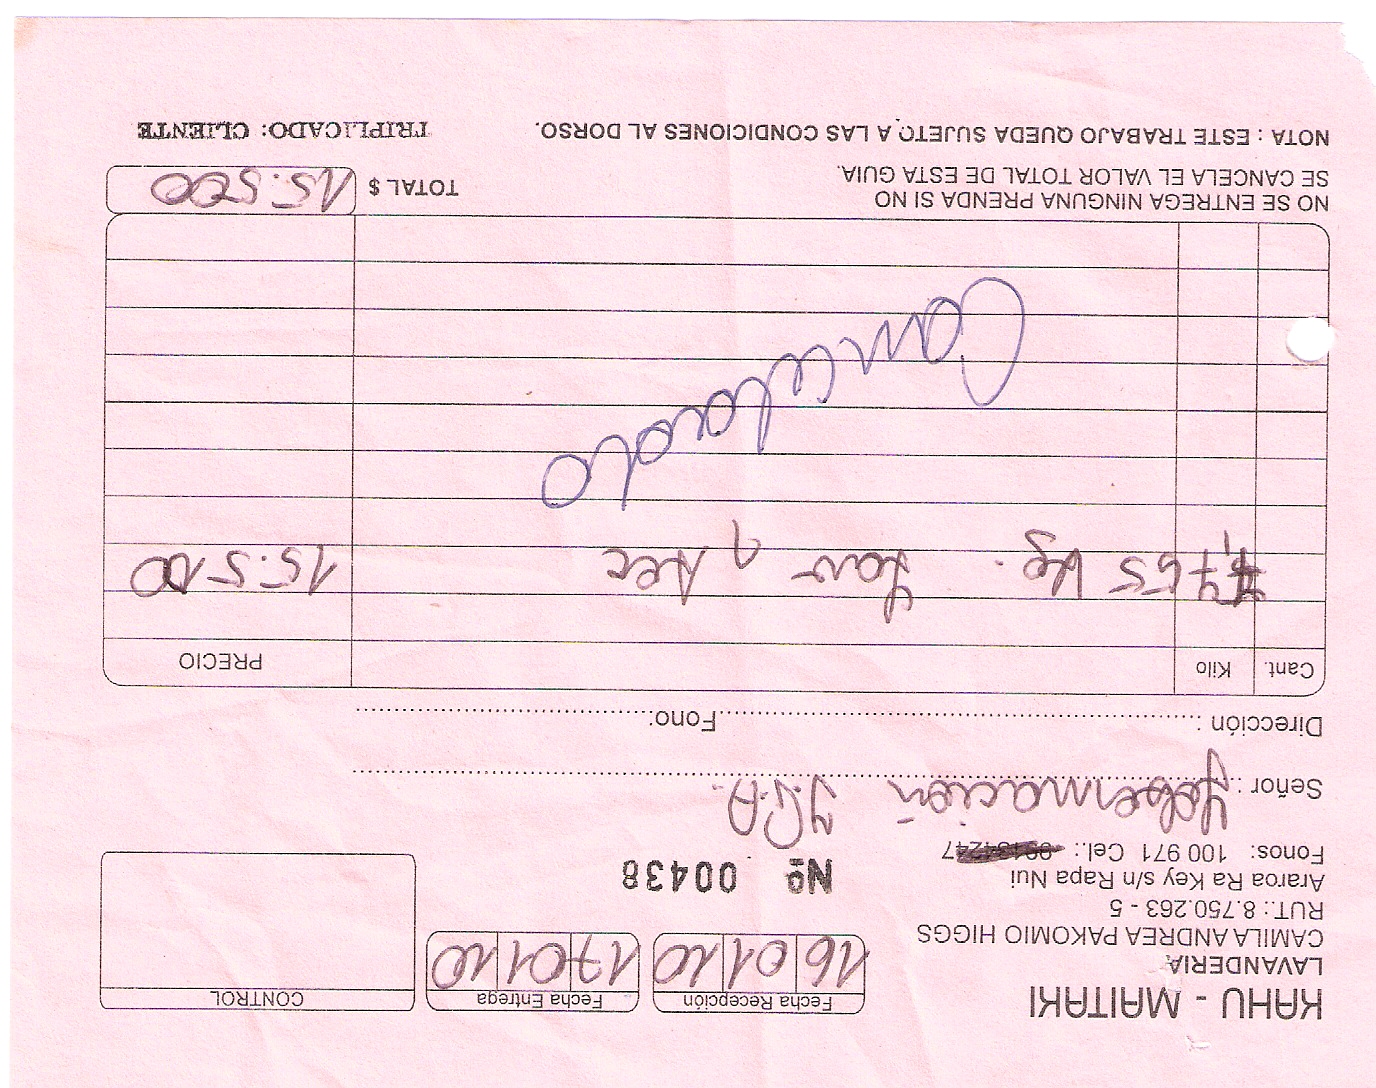 KAHU - MAITAKI
LAVANDERIA
CAMILA ANDREA PAKOMIO HIGGS
RUT.: 8.750.263 - 5
Araroa Ra Key s/n Rapa Nui
Fonos: 100 971 Cel.: 99134247
Fecha Recepción
16 01 10
Fecha Entrega
17 01 10
CONTROL
Nº 00438
Señor : Gobernación
Dirección : Fono:
Cant. Kilo PRECIO
7,755 kg. Lav y sec 15.510
Cancelado
NO SE ENTREGA NINGUNA PRENDA SI NO
SE CANCELA EL VALOR TOTAL DE ESTA GUIA.
TOTAL $ 15.500
NOTA : ESTE TRABAJO QUEDA SUJETO A LAS CONDICIONES AL DORSO.
TRIPLICADO: CLIENTE